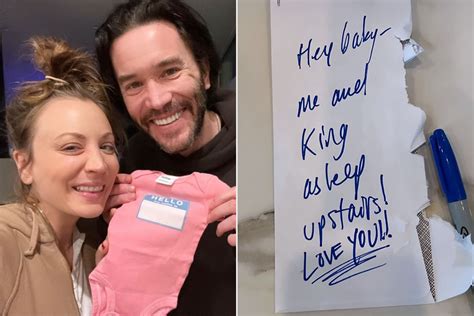 HELLO
Hey baby—
me and
King
asleep
upstairs!
LOVE YOU!!